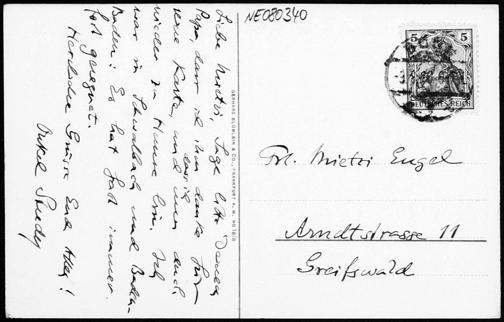 Liebe Mietzi, Sage bitte Deinem
Papa, dass ich ihm danke für
seine Karte, und dass ich nun auch
wieder zu Hause bin. Ich
war in Schwalbach und Baden-
Baden. Es hat fast immer
fast geregnet.
Herzliche Grüsse Euch Allen!
Onkel
GERHARD BLÜMLEIN & CO., FRANKFURT A. M.
NE080340
5 5
DEUTSCHES REICH
Frl. Mietzi Engel
Arndtstrasse 11
Greifswald